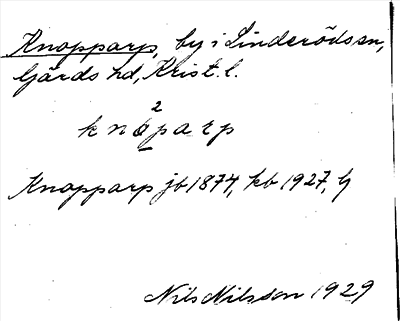 Knopparp, by i Linderöds sn,
Gärds hd, Krist. l.
2
knoparp
Knopparp jb 1874, kb 1927, G
Nils Nilsson 1929